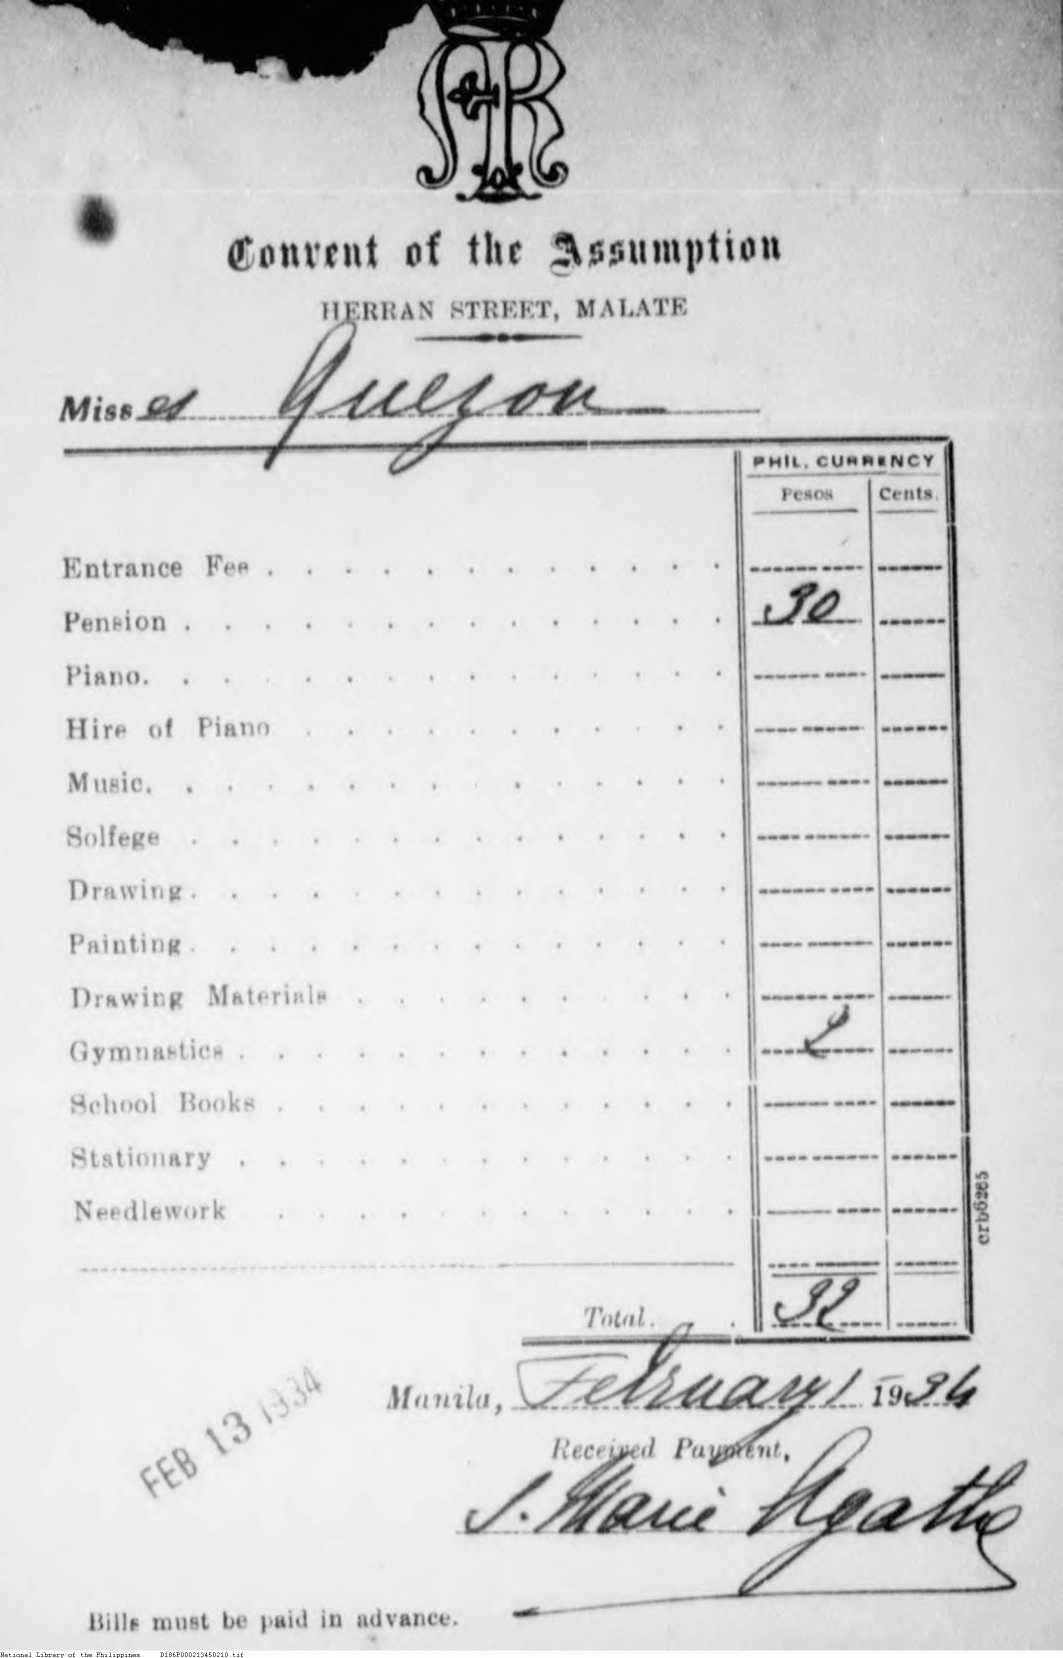 AR
Convent of the Assumption
HERRAN STREET, MALATE
Misses Quezon
PHIL. CURRENCY
Pesos Cents.
Entrance Fee . . . . . . . . . . . .
Pension . . . . . . . . . . . . . . 30
Piano. . . . . . . . . . . . . . .
Hire of Piano . . . . . . . . . . .
Music. . . . . . . . . . . . . . .
Solfege . . . . . . . . . . . . . .
Drawing . . . . . . . . . . . . . .
Painting . . . . . . . . . . . . . .
Drawing Materials . . . . . . . . . .
Gymnastics . . . . . . . . . . . . . 2
School Books . . . . . . . . . . . .
Stationary . . . . . . . . . . . . .
Needlework . . . . . . . . . . . .
crb6265
Total. . . 32
Manila, February 1 1934
FEB 13 1934
Received Payment,
S. Marie Agatha
Bills must be paid in advance.
National Library of the Philippines D186P000213450210.tif